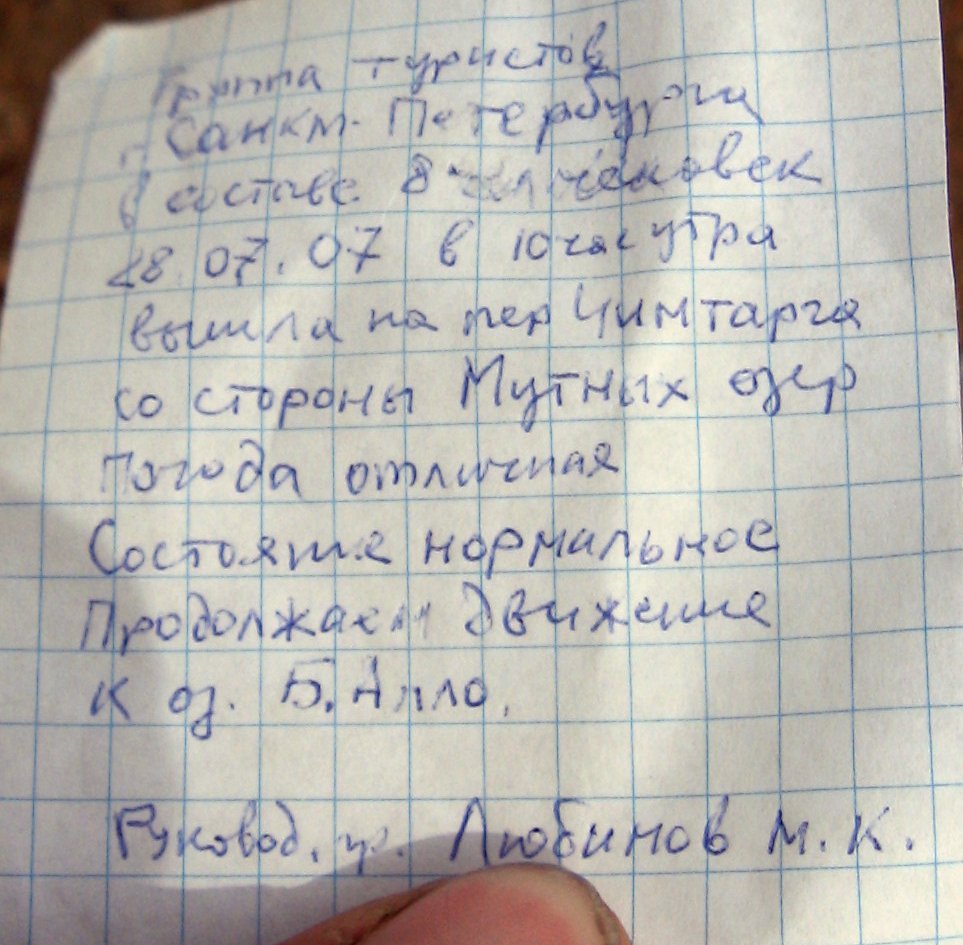 Группа туристов
г. Санкт-Петербурга
в составе 8 человек
28.07.07 в 10 час утра
вышла на пер Чимтарга
со стороны Мутных озер
Погода отличная
Состояние нормальное
Продолжаем движение
к оз. Б. Алло.
Руковод. гр. Любимов М.К.